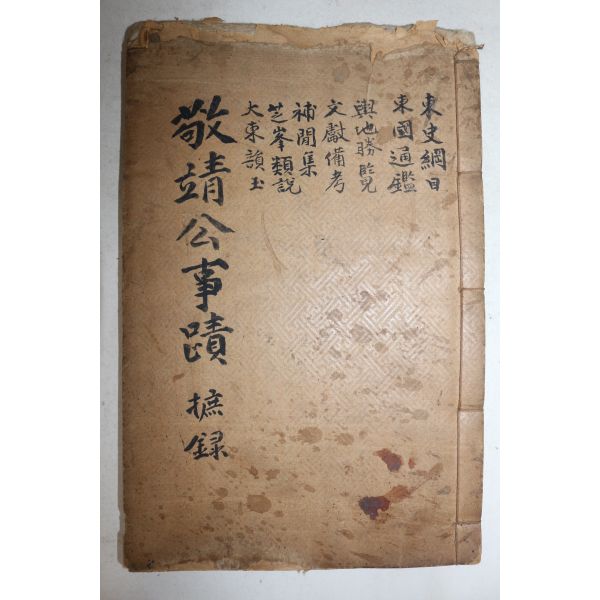 東史綱目
東國通鑑
輿地勝覽
文獻備考
補閒集
芝峯類說
大東韻玉
敬靖公事蹟 摭錄